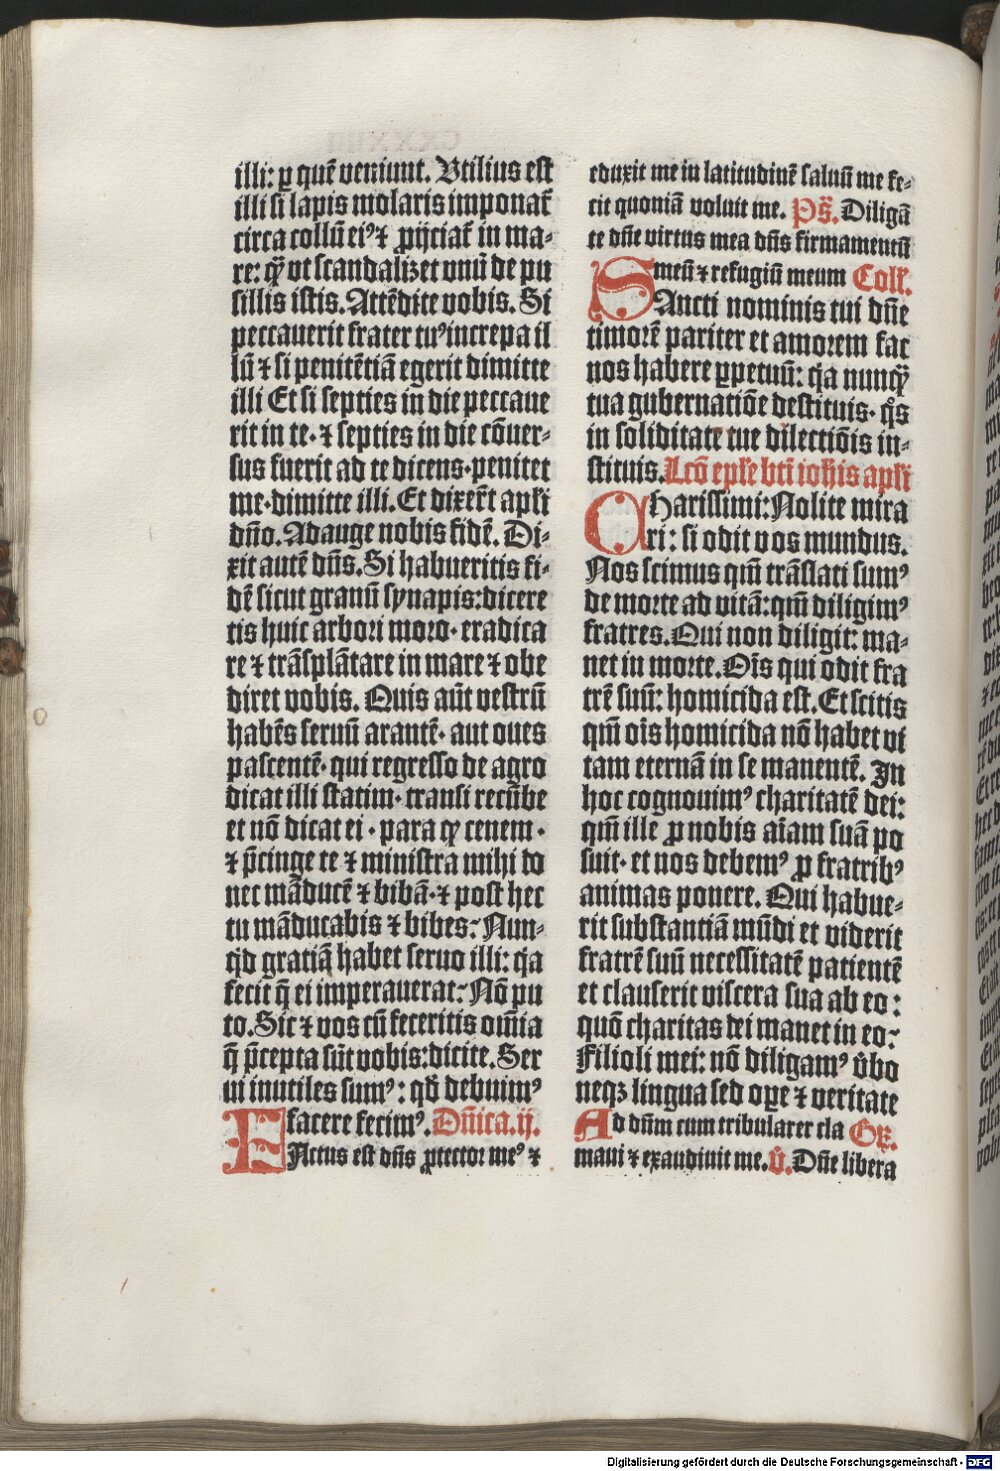 illi: ꝑ quē veniunt. Vtilius est
illi si lapis molaris imponat̄
circa collū eiꝰ ⁊ ꝓijciat̄ in ma⸗
re: qꝫ̄ vt scandalizet vnū de pu
sillis istis. Attēdite vobis. Si
peccauerit frater tuꝰ increpa il
lū ⁊ si penitētiā egerit dimitte
illi Et si septies in die peccaue
rit in te· ⁊ septies in die cōuer⸗
sus fuerit ad te dicens·penitet
me·dimitte illi. Et dixer̄t apłi
dn̄o. Adauge nobis fidē. Di⸗
xit autē dn̄s. Si habueritis fi⸗
dē sicut granū synapis:dicere
tis huic arbori moro· eradica
re ⁊ trāsplātare in mare ⁊ obe
diret vobis. Quis aūt vestrū
habēs seruū arantē· aut oues
pascentē· qui regresso de agro
dicat illi statim· transi recūbe
et nō dicat ei · para qꝫ cenem ·
⁊ p̄cinge te ⁊ ministra mihi do
nec māducē ⁊ bibā·⁊ post hec
tu māducabis ⁊ bibes: Nun⸗
qd̄ gratiā habet seruo illi: q̄a
fecit q̄ ei imperauerat: Nō pu
to. Sic ⁊ vos cū feceritis om̄ia
q̄ p̄cepta sūt vobis:dicite. Ser
ui inutiles sumꝰ: qd̄ debuimꝰ
facere fecimꝰ. Dn̄ica.ij.
FActus est dn̄s ꝓtector meꝰ ⁊
eduxit me in latitudinē saluū me fe⸗
cit quoniā voluit me. Ps̄. Diligā
te dn̄e virtus mea dn̄s firmamentū
meū ⁊ refugiū meum Coll̄.
SAncti nominis tui dn̄e
timorē pariter et amorem fac
nos habere ꝑpetuū: q̄a nunqꝫ̄
tua gubernatiōe destituis· qͦs
in soliditate tue dilectiōis in⸗
stituis. Lcō epłe bt̄i ioh̄is apłi
CHarissimi: Nolite mira
ri: si odit vos mundus.
Nos scimus qm̄ trāslati sumꝰ
de morte ad vitā:qm̄ diligimꝰ
fratres. Qui non diligit: ma⸗
net in morte. Oīs qui odit fra
trē suū: homicida est. Et scitis
qm̄ oīs homicida nō habet vi
tam eternā in se manentē. In
hoc cognouimꝰ charitatē dei:
qm̄ ille ꝓ nobis aīam suā po
suit· et nos debemꝰ ꝓ fratribꝰ
animas ponere. Qui habue⸗
rit substantiā mūdi et viderit
fratrē suū necessitatē patientē
et clauserit viscera sua ab eo :
quō charitas dei manet in eo:
Filioli mei: nō diligamꝰ v̄bo
neqꝫ lingua sed oꝑe ⁊ veritate
AD dn̄m cum tribularer cla Gꝶ.
maui ⁊ exaudiuit me. v̄. Dn̄e libera
Digitalisierung gefördert durch die Deutsche Forschungsgemeinschaft - DFG